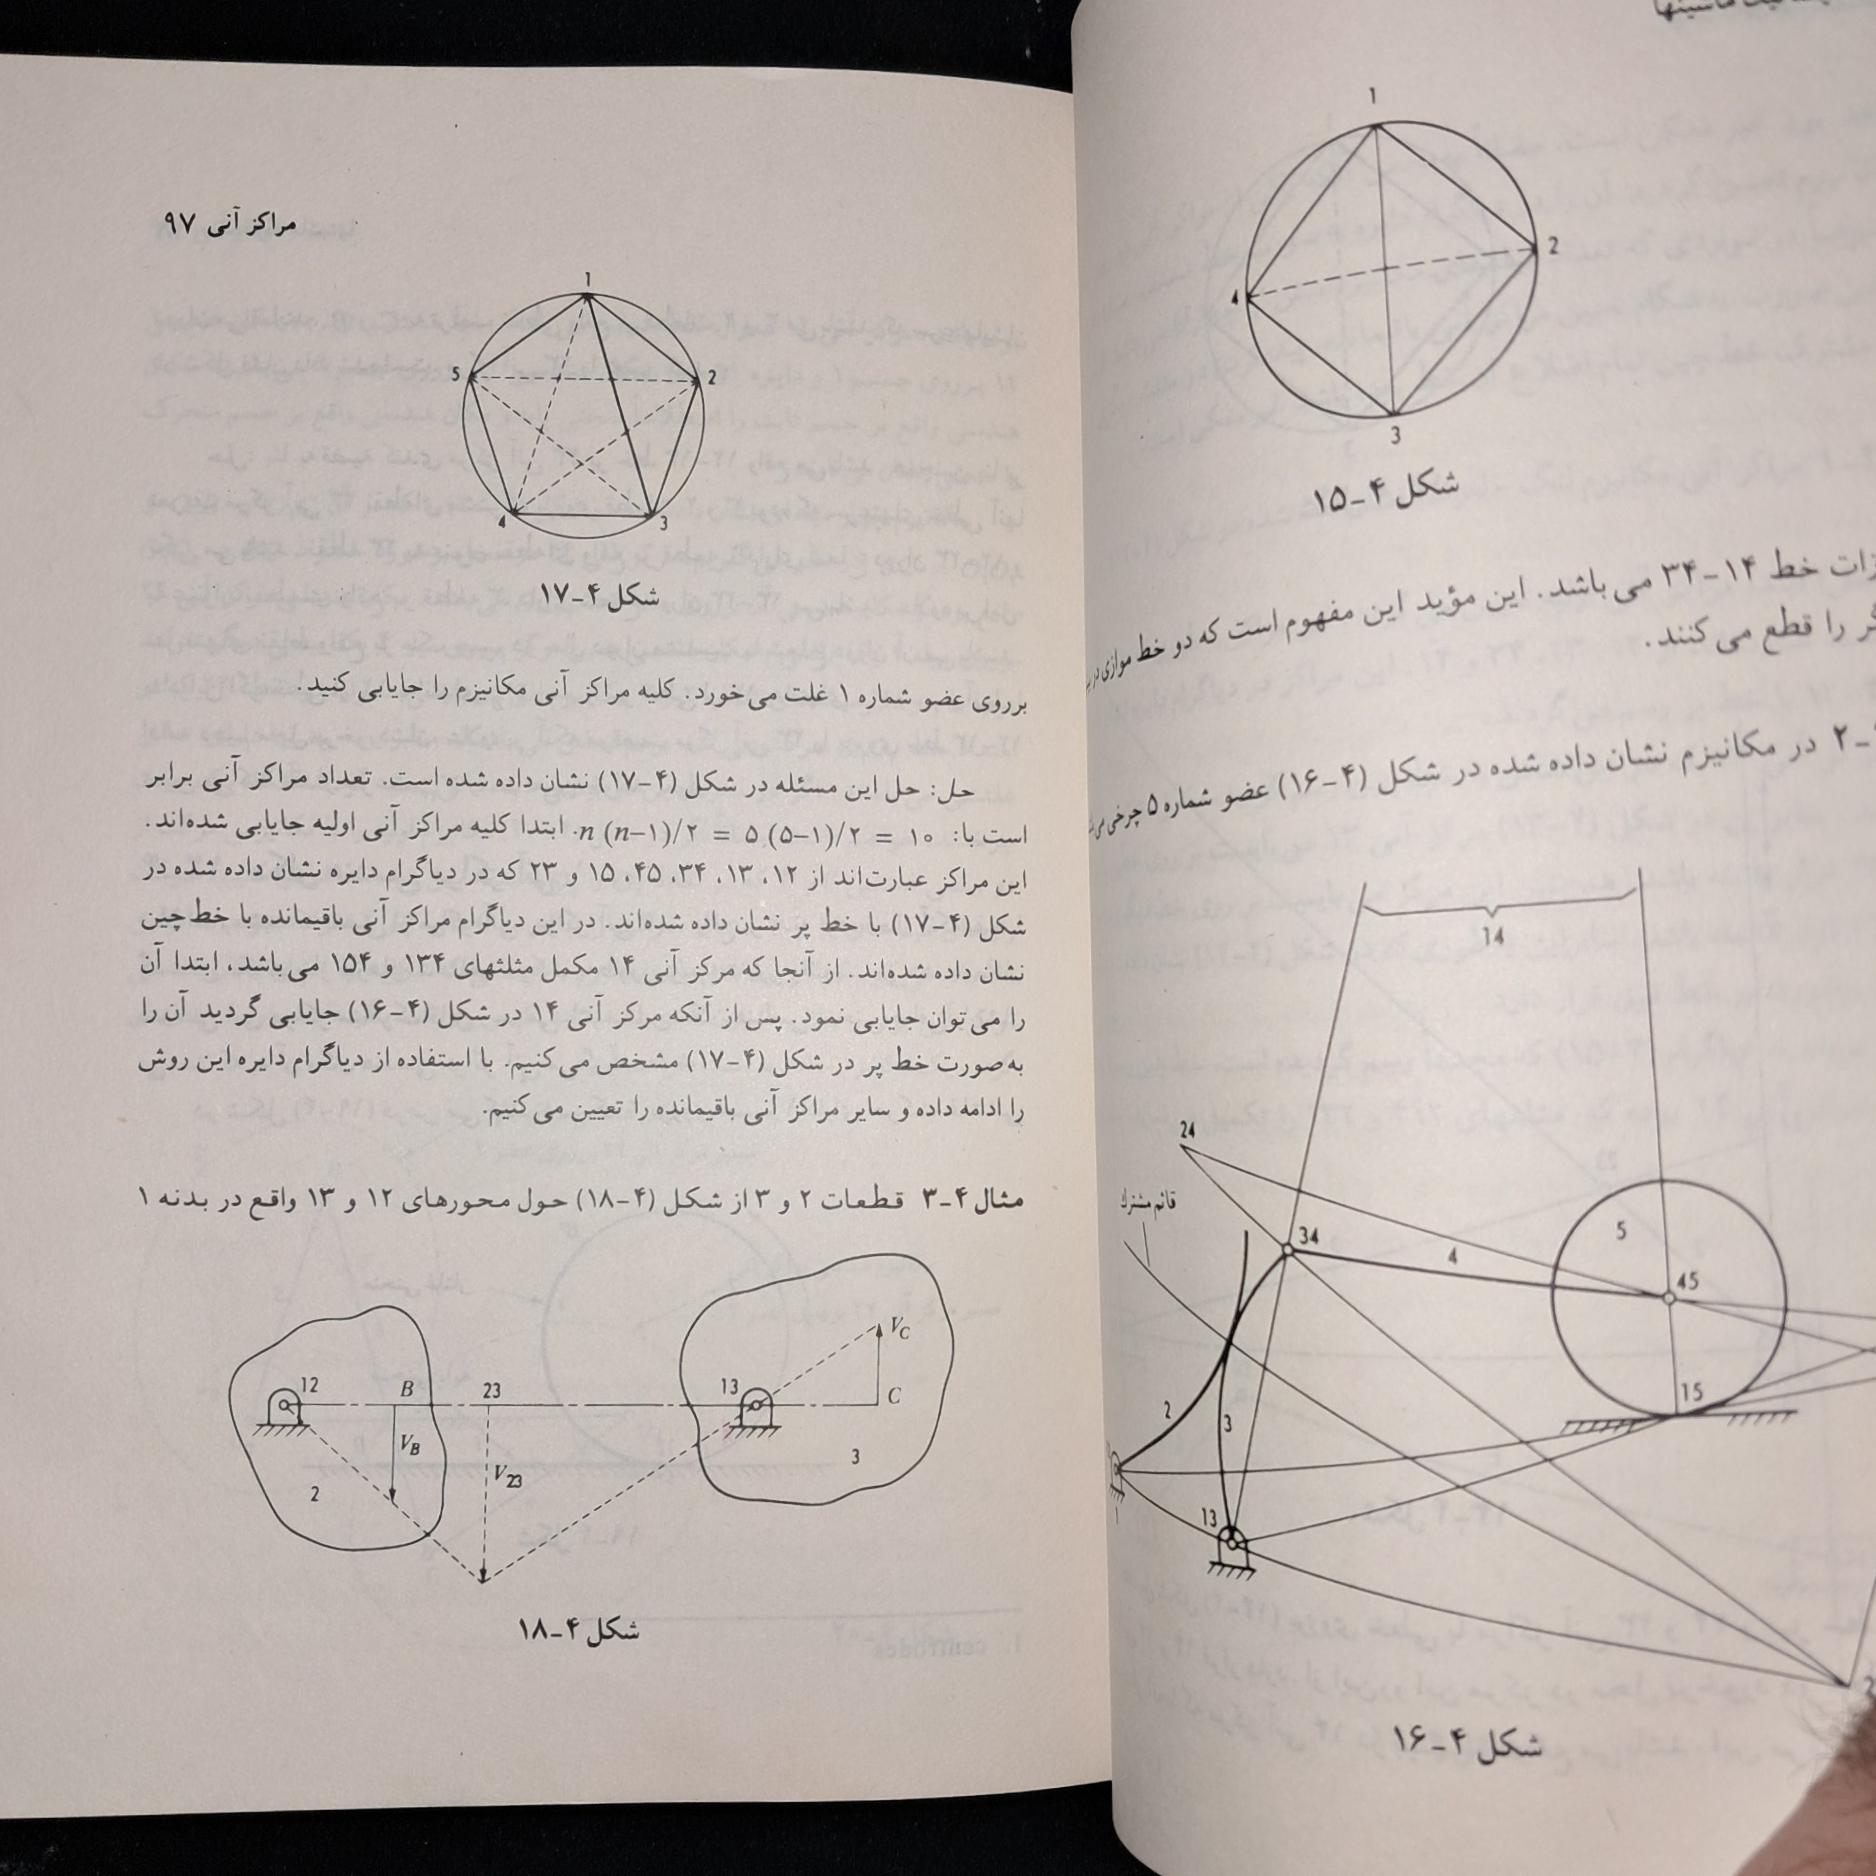 1
2
4
3
شکل ۴-۱۵
خط ۱۴-۳۴ می‌باشد. این مؤید این مفهوم است که دو خط موازی در
را قطع می‌کنند.
در مکانیزم نشان داده شده در شکل (۴-۱۶) عضو شماره ۵ چرخی
14
24
قائم مشترك
34
4
5
45
15
2
3
13
شکل ۴-۱۶
مراکز آنی ۹۷
1
5
2
4
3
شکل ۴-۱۷
برروی عضو شماره ۱ غلت می‌خورد. کلیه مراکز آنی مکانیزم را جایابی کنید.
حل: حل این مسئله در شکل (۴-۱۷) نشان داده شده است. تعداد مراکز آنی برابر
است با: n (n-۱)/۲ = ۵ (۵-۱)/۲ = ۱۰. ابتدا کلیه مراکز آنی اولیه جایابی شده‌اند.
این مراکز عبارت‌اند از ۱۲، ۱۳، ۳۴، ۴۵، ۱۵ و ۲۳ که در دیاگرام دایره نشان داده شده در
شکل (۴-۱۷) با خط پر نشان داده شده‌اند. در این دیاگرام مراکز آنی باقیمانده با خط‌چین
نشان داده شده‌اند. از آنجا که مرکز آنی ۱۴ مکمل مثلثهای ۱۳۴ و ۱۵۴ می‌باشد، ابتدا آن
را می‌توان جایابی نمود. پس از آنکه مرکز آنی ۱۴ در شکل (۴-۱۶) جایابی گردید آن را
به‌صورت خط پر در شکل (۴-۱۷) مشخص می‌کنیم. با استفاده از دیاگرام دایره این روش
را ادامه داده و سایر مراکز آنی باقیمانده را تعیین می‌کنیم.
مثال ۴-۳ قطعات ۲ و ۳ از شکل (۴-۱۸) حول محورهای ۱۲ و ۱۳ واقع در بدنه ۱
12
B
23
13
V_C
C
V_B
V_23
2
3
شکل ۴-۱۸